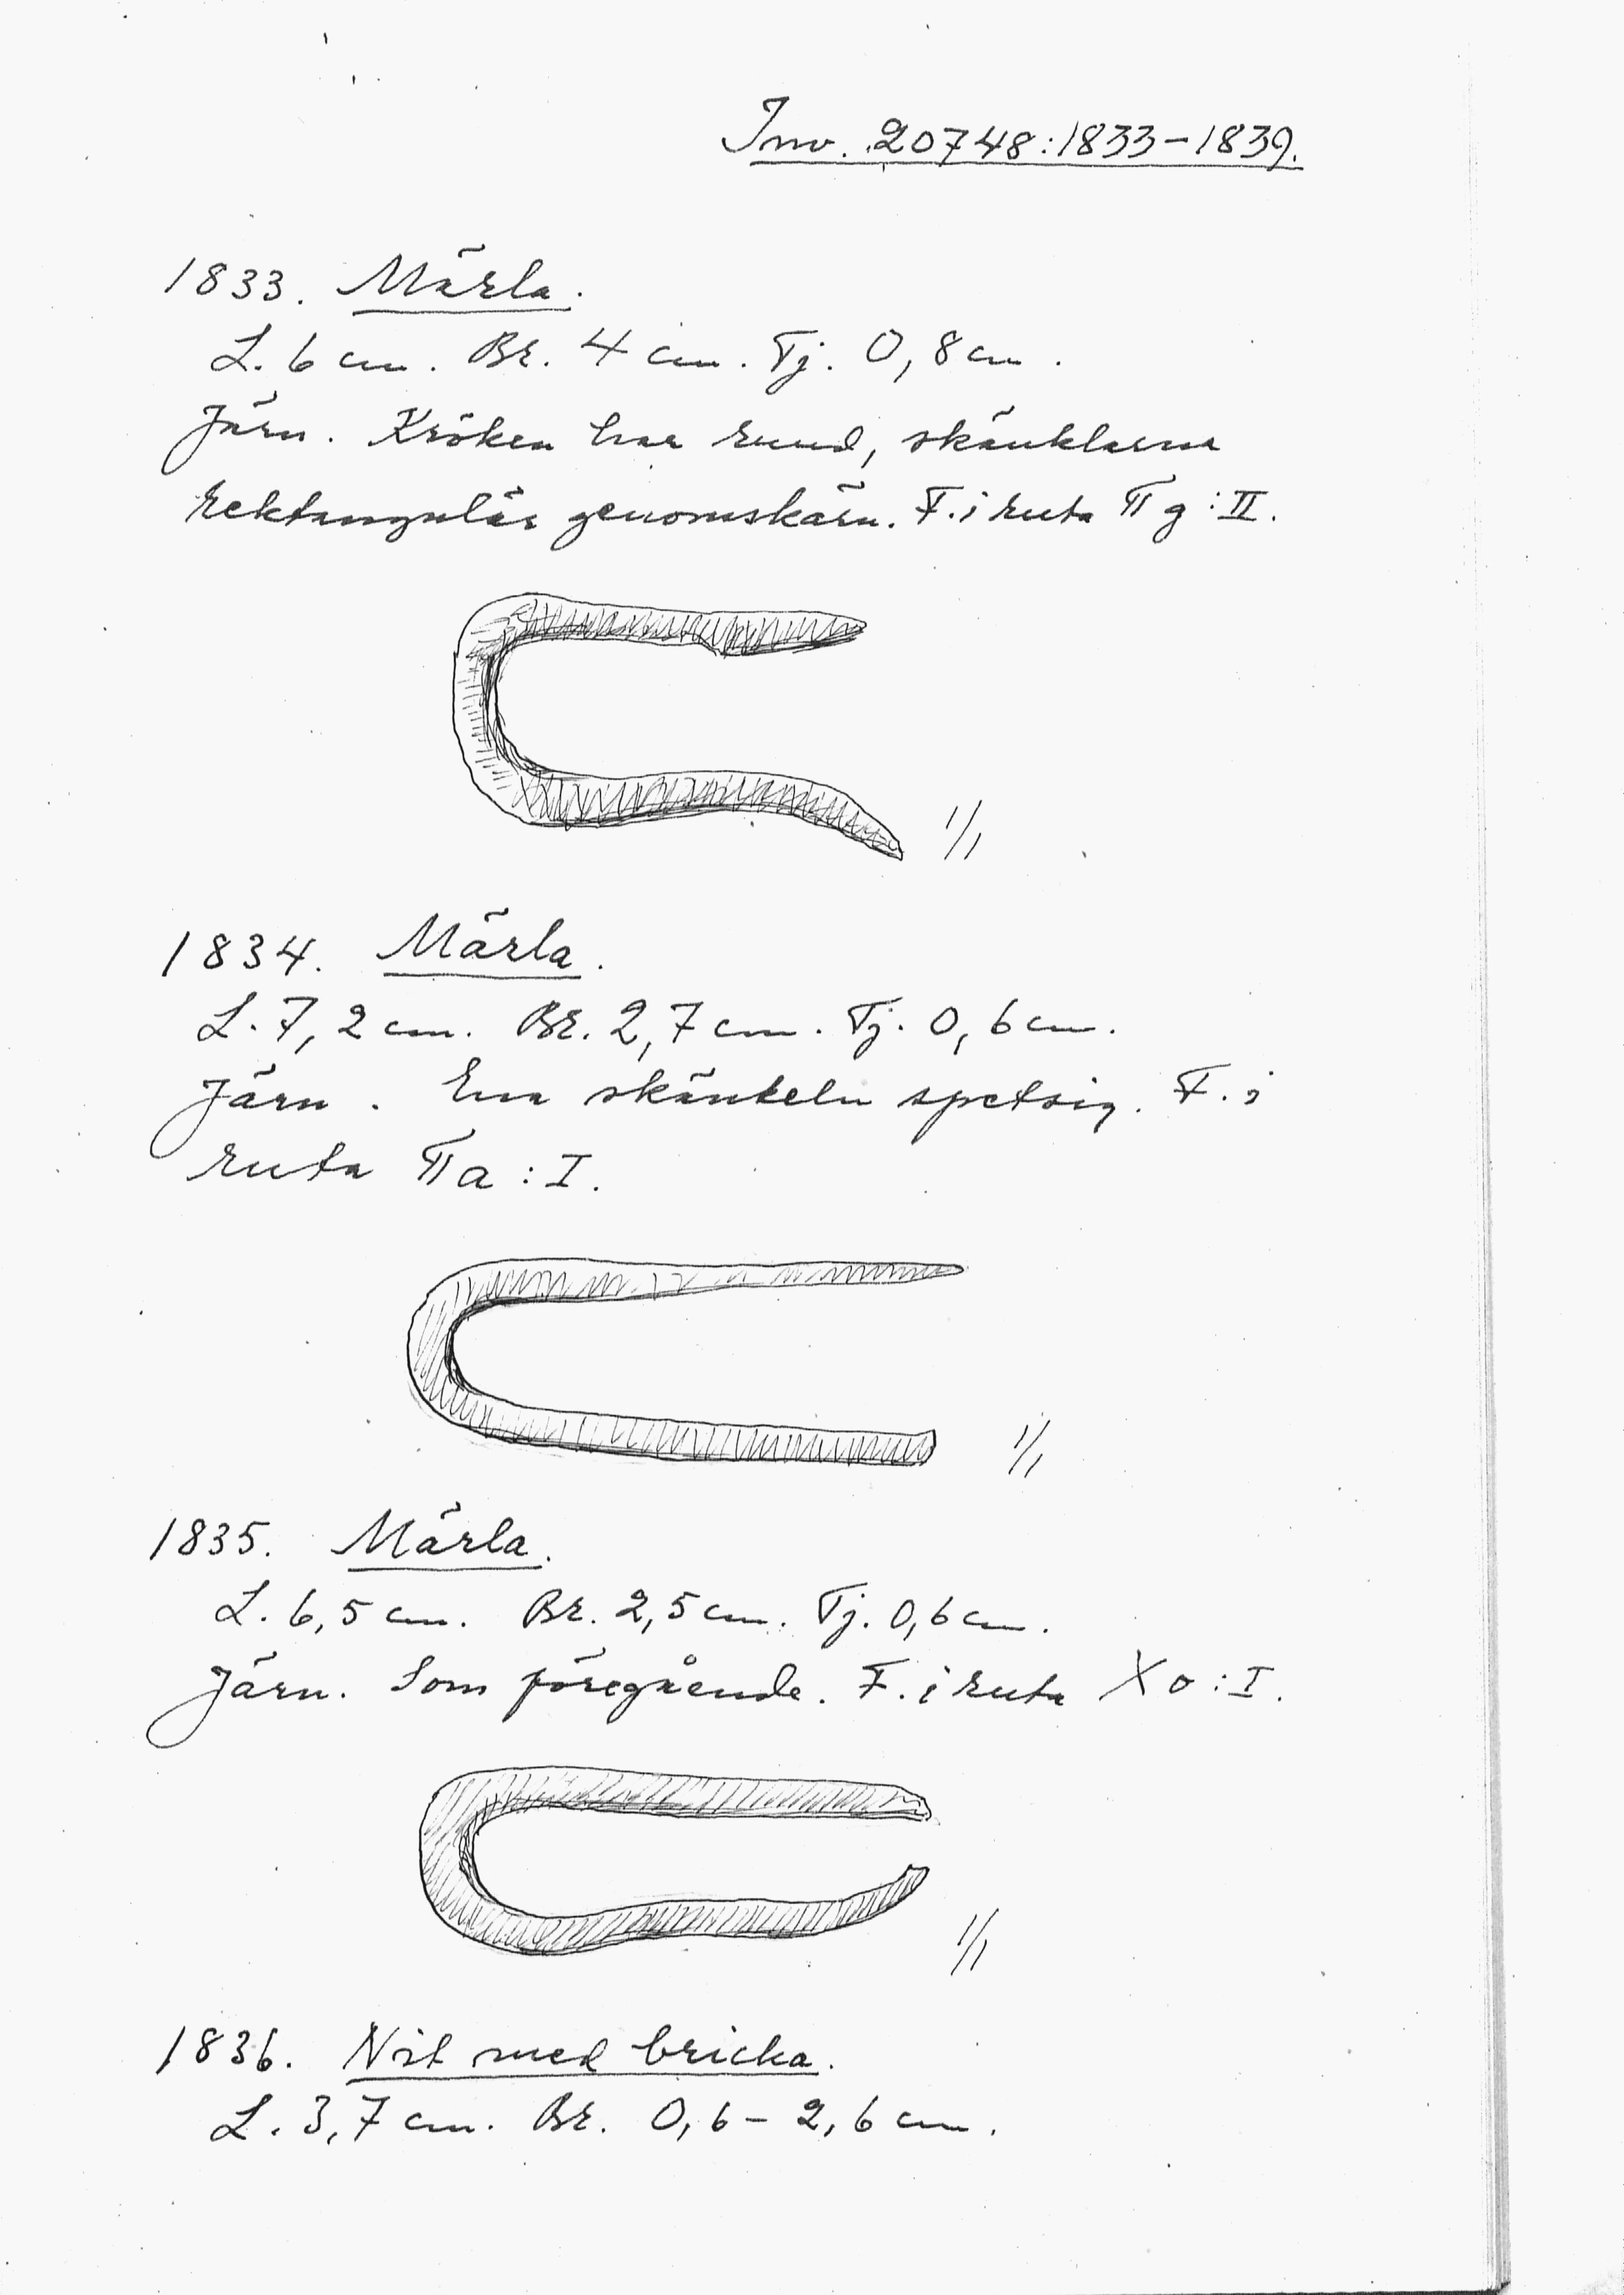 Inv. 20748:1833-1839.
1833. Märla.
L. 6 cm. Br. 4 cm. Tj. 0,8 cm.
Järn. Kröken har rund, skänklarna
rektangulär genomskärn. F. i ruta π g : II.
1/1
1834. Märla.
L. 7,2 cm. Br. 2,7 cm. Tj. 0,6 cm.
Järn. Ena skänkeln spetsig. F. i
ruta π a : I.
1/1
1835. Märla.
L. 6,5 cm. Br. 2,5 cm. Tj. 0,6 cm.
Järn. Som föregående. F. i ruta X o : I.
1/1
1836. Nit med bricka.
L. 3,7 cm. Br. 0,6 - 2,6 cm.